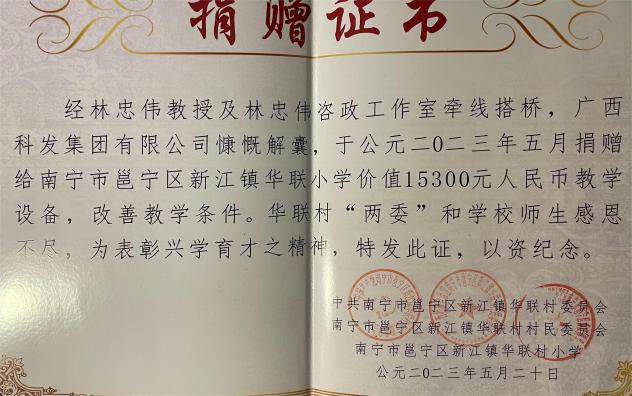 捐赠证书
经林忠伟教授及林忠伟咨政工作室牵线搭桥，广西
科发集团有限公司慷慨解囊，于公元二0二三年五月捐赠
给南宁市邕宁区新江镇华联小学价值15300元人民币教学
设备，改善教学条件。华联村“两委”和学校师生感恩
不尽，为表彰兴学育才之精神，特发此证，以资纪念。
中共南宁市邕宁区新江镇华联村委员会
南宁市邕宁区新江镇华联村村民委员会
南宁市邕宁区新江镇华联村小学
公元二0二三年五月二十日